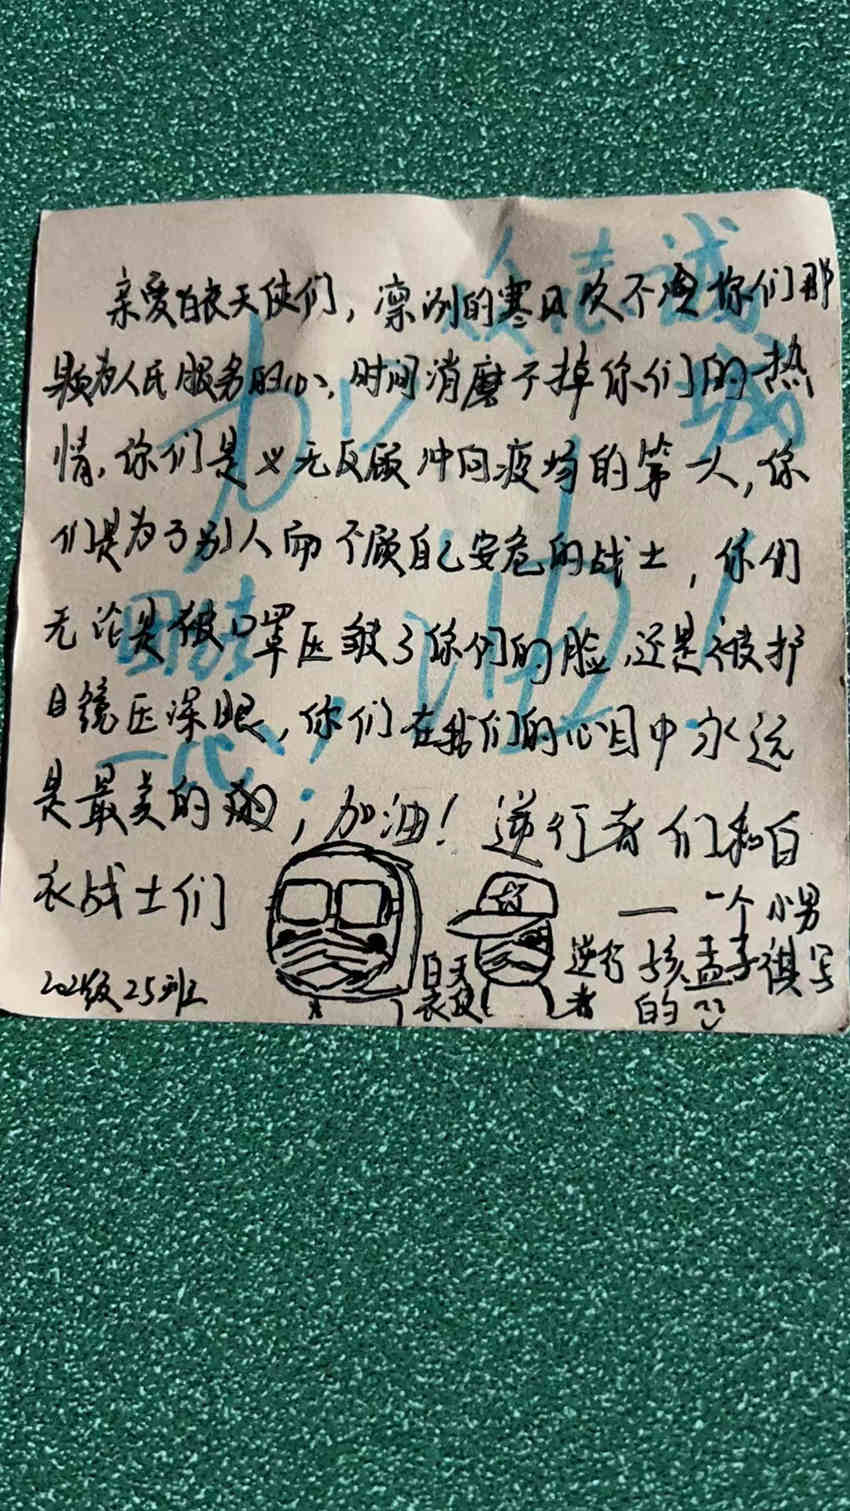 亲爱白衣天使们，凛冽的寒风吹不灭你们那
颗为人民服务的心，时间消磨不掉你们的热
情，你们是义无反顾冲向疫场的第一人，你
们是为了别人而不顾自己安危的战士，你们
无论是被口罩压皱了你们的脸，还是被护
目镜压深眼，你们在我们的心目中永远
是最美的；加油！逆行者们和白
衣战士们
——一个小男
孩孟子祺写
的
2021级25班
白衣天使
逆行者
众志成城
加油！
团结一心，